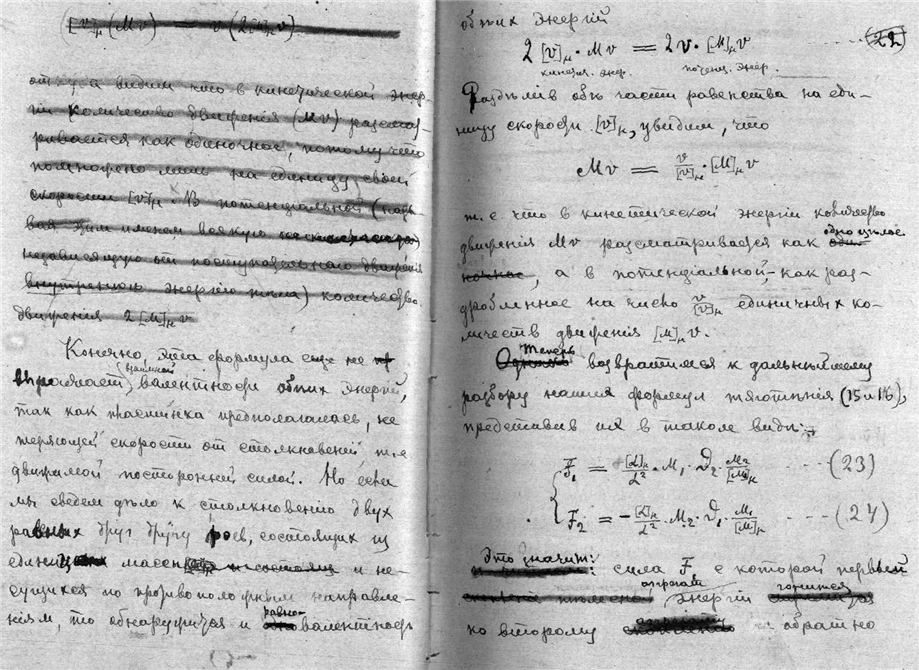 [v]ₙ(Mv) = v(2[м]ₙv)
откуда видим что в кинетической энер-
гіи количество движенія (Mv) разсмат-
ривается как одиночное, потому что
помножено лишь на единицу своей
скорости [v]ₙ. В потенціальной (назы-
вая этим именем всякую
независящую от поступательнаго движенія
внутреннюю энергію тела) количество
движенія 2[м]ₙv
Конечно, эта формула еще не
выражает валентности обоих энергій,
так как пластинка предполагалась, не
теряющей скорости от столкновеній т.е
двигаемой посторонней силой. Но если
мы сведем дѣло к столкновенію двух
равных друг другу роев, состоящих из
единиц массы и не-
сущихся по противоположным направле-
ніям, то обнаружится и равно-
валентность
обоих энергій
2[v]ₙ · Mv = 2v · [M]ₙv (22)
кинетич. энер. потенц. энер.
Раздѣлив обѣ части равенства на еди-
ницу скорости [v]ₙ, увидим, что
Mv = v/[v]ₙ · [M]ₙv
т. е. что в кинетической энергіи количество
движенія Mv разсматривается как одно цѣлое
, а в потенціальной, как раз-
дробленное на число v/[v]ₙ единичных ко-
личеств движенія [м]ₙv.
Теперь возвратимся к дальнѣйшему
разбору наших формул тяготѣнія (15 и 16),
представив их в таком видѣ:
F₁ = [L]ₙ/L² · M₁ · ϑ₂ · M₂/[M]ₙ (23)
F₂ = −[L]ₙ/L² · M₂ · ϑ₁ · M₁/[M]ₙ (24)
Это значит: сила F с которой первый
энергіи
ко второму обратно